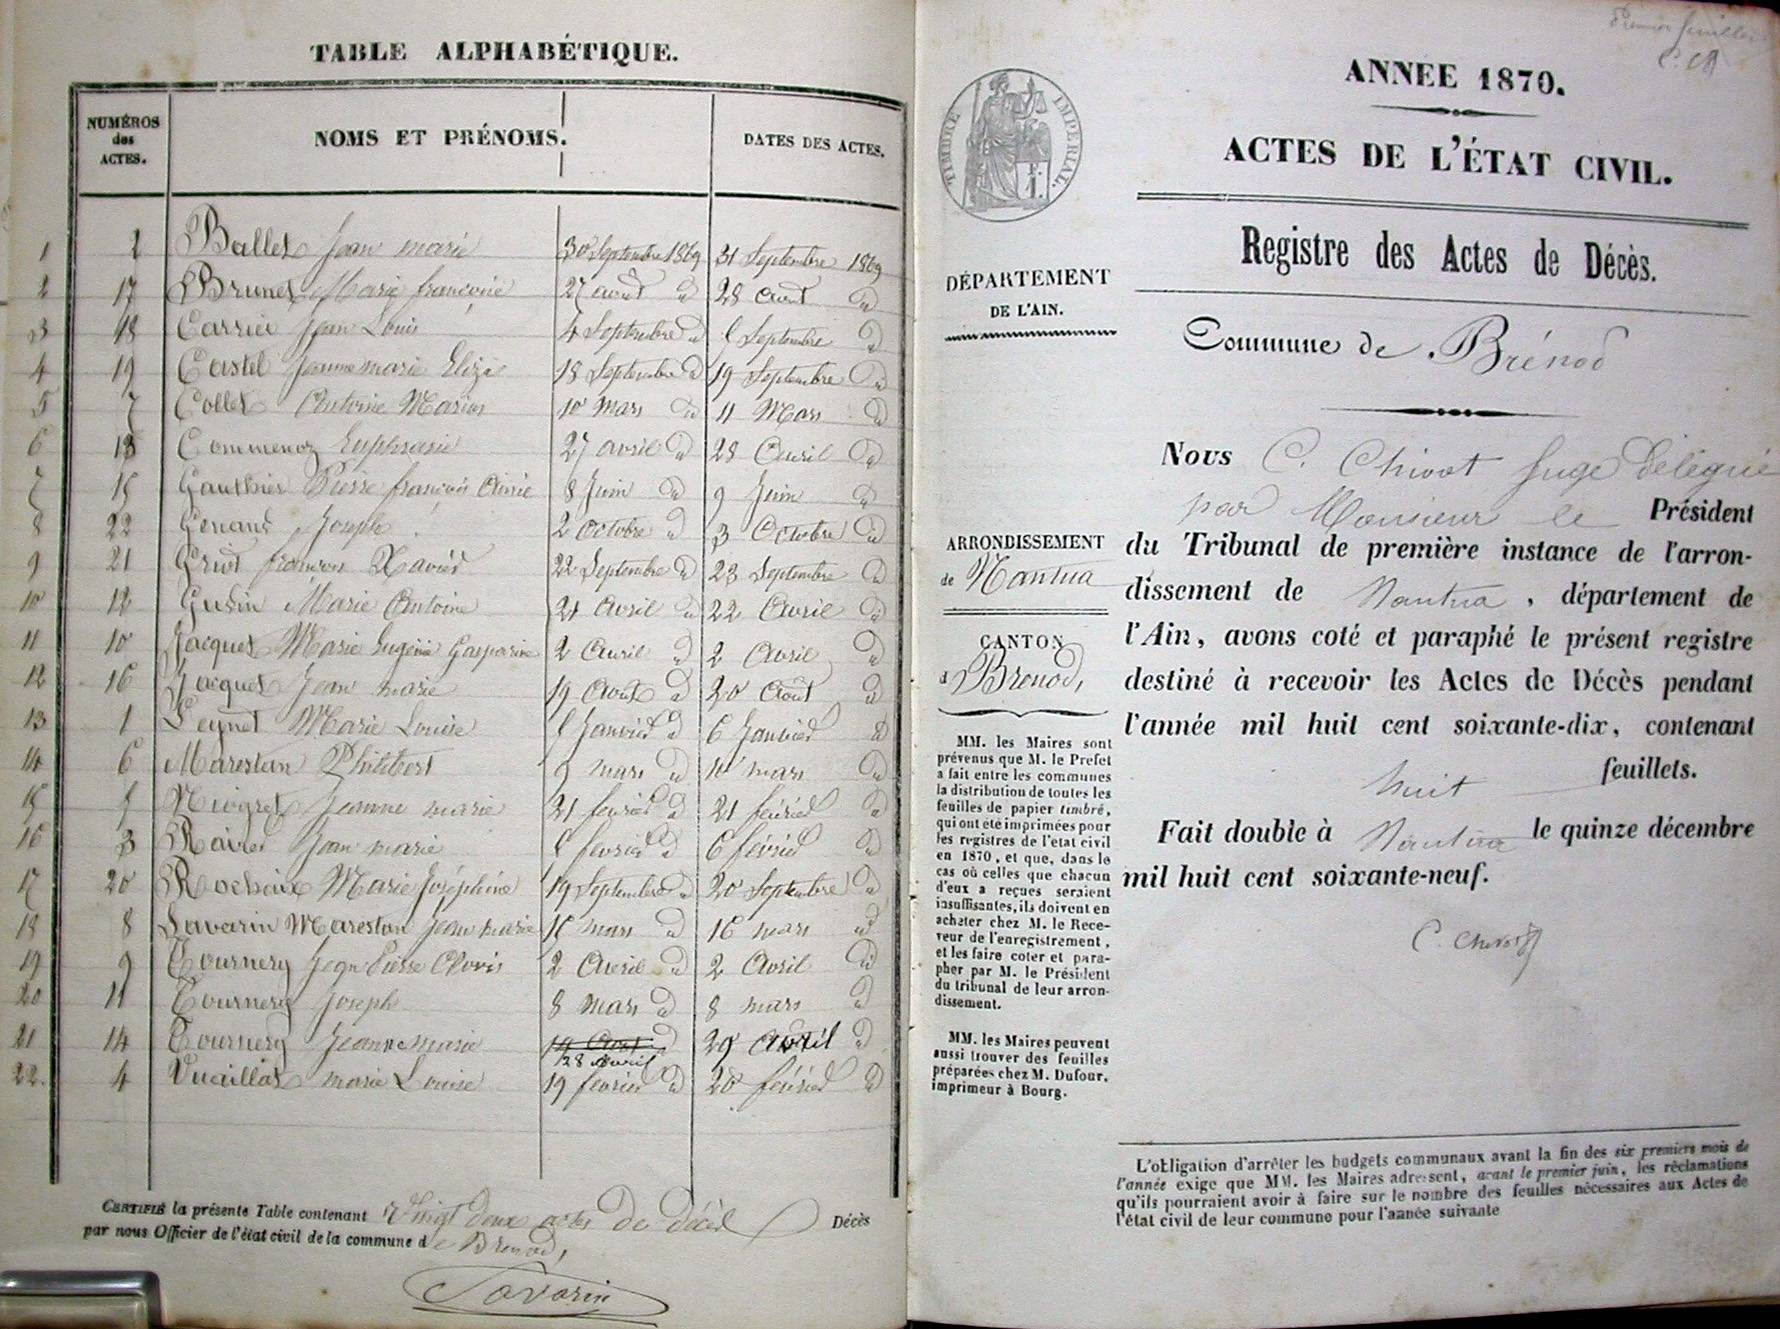 TABLE ALPHABÉTIQUE.
NUMÉROS des ACTES.
NOMS ET PRÉNOMS.
DATES DES ACTES.
1 2 Ballet Jean marie 30 Septembre 1869 31 Septembre 1869
2 17 Brunet Marie françoise 27 août d 28 Août d
3 18 Carrier Jean Louis 4 Septembre d 5 Septembre d
4 19 Castel Jeanne marie Eliza 18 Septembre d 19 Septembre d
5 7 Collet Antoine Marius 10 Mars d 11 Mars d
6 13 Commenoz Euphrasie 27 avril d 28 Avril d
7 15 Gauthier Pierre françois Aimé 8 Juin d 9 Juin d
8 22 Genand Joseph 2 Octobre d 3 Octobre d
9 21 Griot françois Xavier 22 Septembre d 23 Septembre d
10 12 Gudin Marie Antoine 21 Avril d 22 Avril d
11 10 Jacquet Marie Eugénie Gasparine 2 Avril d 2 Avril d
12 16 Jacquet Jean marie 19 Août d 20 Août d
13 1 Leynet Marie Louise 5 Janvier d 6 Janvier d
14 6 Marestan Philibert 9 mars d 10 mars d
15 5 Niogret Jeanne marie 21 février d 21 février d
16 3 Ravier Jean marie 5 février d 6 février d
17 20 Rochaix Marie Joséphine 19 Septembre d 20 Septembre d
18 8 Savarin Marestan Jean marie 15 mars d 16 mars d
19 9 Tournery Jean Pierre Clovis 2 Avril d 2 Avril d
20 11 Tournery Joseph 8 mars d 8 mars d
21 14 Tournery Jeanne Marie 28 Avril d 29 Avril d
22. 4 Vuaillat marie Louise 19 février d 20 février d
CERTIFIÉ la présente Table contenant Vingt deux actes de décès Décès
par nous Officier de l'état civil de la commune de Brenod,
Savarin
Premier feuillet
C. Ch
ANNÉE 1870.
ACTES DE L'ÉTAT CIVIL.
Registre des Actes de Décès.
TIMBRE IMPERIAL.
DÉPARTEMENT
DE L'AIN.
Commune de Brénod
ARRONDISSEMENT
de Nantua
CANTON
d Brenod,
MM. les Maires sont
prévenus que M. le Préfet
a fait entre les communes
la distribution de toutes les
feuilles de papier timbré,
qui ont été imprimées pour
les registres de l'état civil
en 1870, et que, dans le
cas où celles que chacun
d'eux a reçues seraient
insuffisantes, ils doivent en
acheter chez M. le Rece-
veur de l'enregistrement,
et les faire coter et para-
pher par M. le Président
du tribunal de leur arron-
dissement.
MM. les Maires peuvent
aussi trouver des feuilles
préparées chez M. Dufour,
imprimeur à Bourg.
Nous C. Chivot Juge délégué
par Monsieur le Président
du Tribunal de première instance de l'arron-
dissement de Nantua, département de
l'Ain, avons coté et paraphé le présent registre
destiné à recevoir les Actes de Décès pendant
l'année mil huit cent soixante-dix, contenant
huit feuillets.
Fait double à Nantua le quinze décembre
mil huit cent soixante-neuf.
C. Chivot
L'obligation d'arrêter les budgets communaux avant la fin des six premiers mois de
l'année exige que MM. les Maires adressent, avant le premier juin, les réclamations
qu'ils pourraient avoir à faire sur le nombre des feuilles nécessaires aux Actes de
l'état civil de leur commune pour l'année suivante